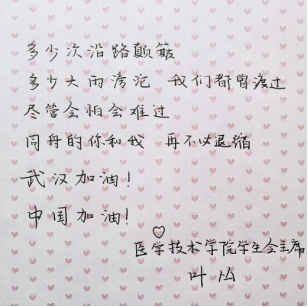 多少次沿路颠簸
多少大雨滂沱 我们都曾渡过
尽管会怕会难过
同舟的你和我 再不必退缩
武汉加油!
中国加油!
医学技术学院学生会主席
叶